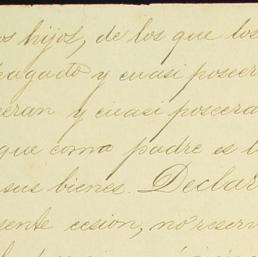 os hijos, de los que los
agado y cuasi poseer
eran y cuasi posecra
que como padre es l
sus bienes. Declar
sente cesion, no reserv